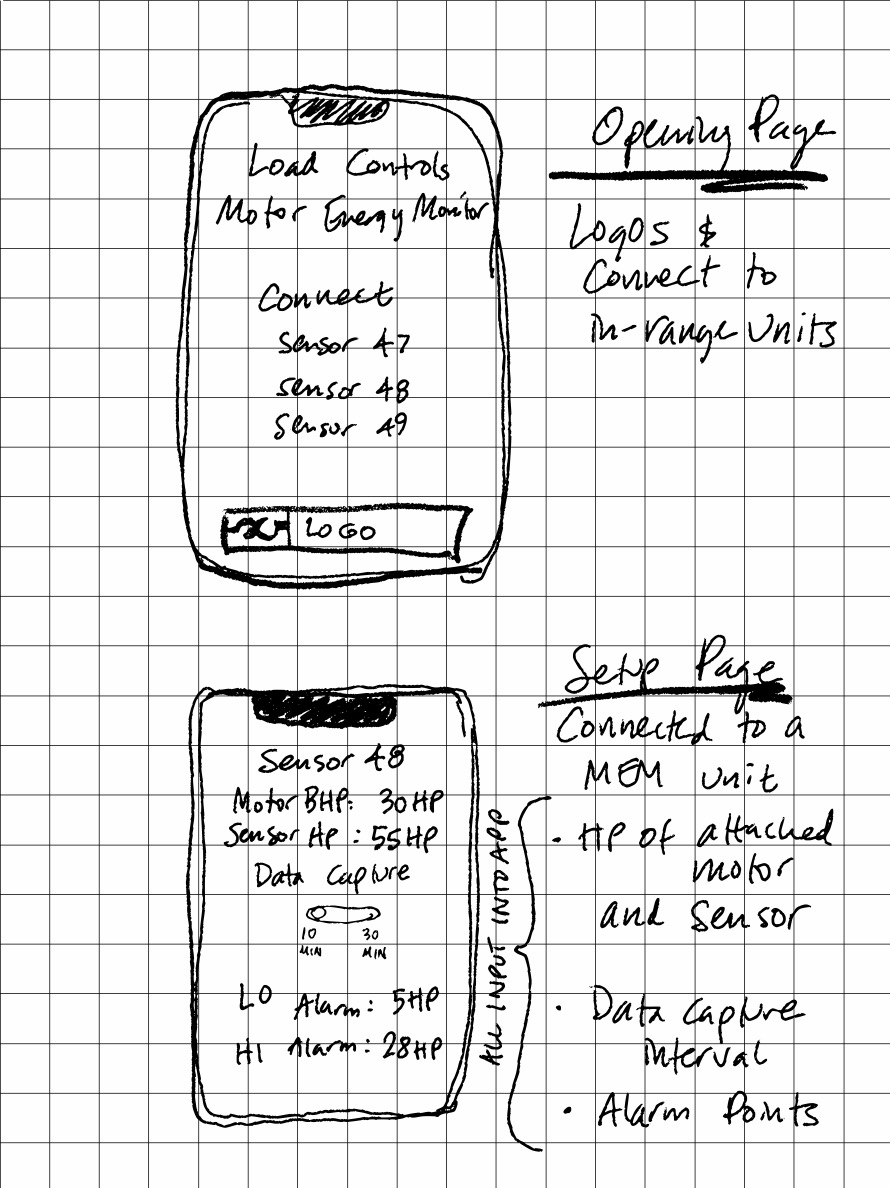 Load Controls
Motor Energy Monitor
Connect
Sensor 47
Sensor 48
Sensor 49
LOGO
Opening Page
Logos &
Connect to
in-range units
Sensor 48
Motor BHP: 30HP
Sensor HP: 55HP
Data Capture
10 MIN 30 MIN
LO Alarm: 5HP
HI Alarm: 28HP
ALL INPUT INTO APP
Setup Page
Connected to a
MEM unit
• HP of attached
motor
and Sensor
• Data Capture
interval
• Alarm Points